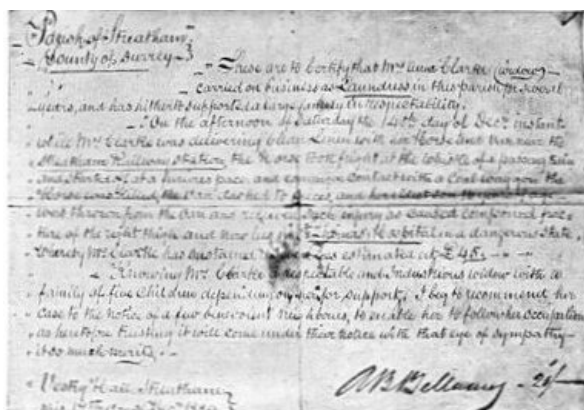 Parish of Streatham
County of Surrey
These are to Certify that Mrs Anna Clarke (widow)
carried on business as Laundress in this parish for several
years, and has hitherto supported a large family in respectability.
On the afternoon of Saturday the 14th day of Decr instant
while Mrs Clarke was delivering Clean Linen with her Horse and Van near the
Streatham Railway Station, the Horse took fright at the Whistle of a passing train
and started off at a furious pace and coming in Contact with a Coal waggon the
Horse was Killed, the Van dashed to pieces, and her eldest son
was thrown from the Van and received such injury as caused compound frac
ture of the right thigh and now lies in St Thomas's Hospital in a dangerous state
whereby Mrs Clarke has sustained a loss estimated at £45.
Knowing Mrs Clarke a respectable and Industrious widow with a
family of five Children depending on her for support, I beg to recommend her
case to the notice of a few benevolent neighbours, to enable her to follow her occupation
as heretofore trusting it will come under their notice with that eye of sympathy
it so much merits.
Vestry Hall Streatham
A B Bellamy - 2/-